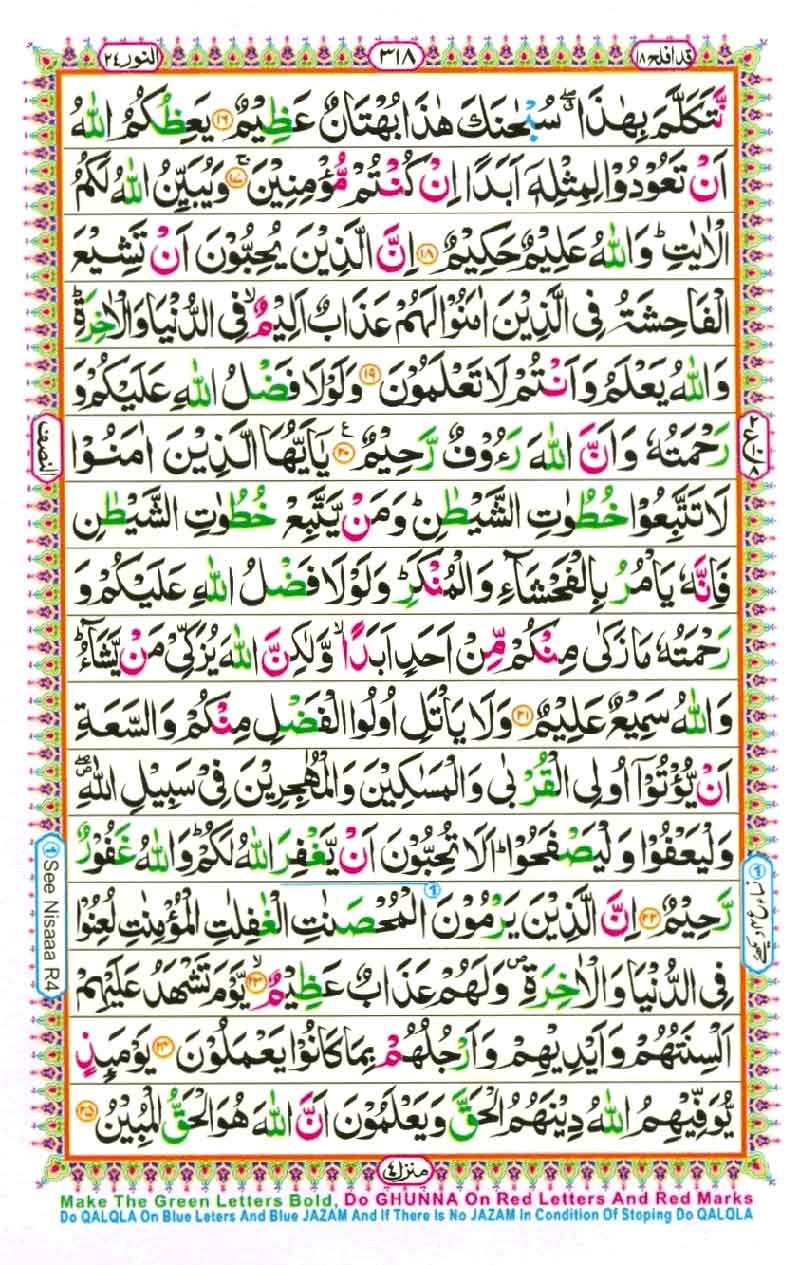 قد افلح ١٨
٣١٨
النور ٢٤
نَّتَكَلَّمَ بِهٰذَا ۖ سُبْحٰنَكَ هٰذَا بُهْتَانٌ عَظِيْمٌ ﴿١٦﴾ يَعِظُكُمُ اللّٰهُ
اَنْ تَعُوْدُوْا لِمِثْلِهٖٓ اَبَدًا اِنْ كُنْتُمْ مُّؤْمِنِيْنَ ﴿١٧﴾ وَيُبَيِّنُ اللّٰهُ لَكُمُ
الْاٰيٰتِ ؕ وَاللّٰهُ عَلِيْمٌ حَكِيْمٌ ﴿١٨﴾ اِنَّ الَّذِيْنَ يُحِبُّوْنَ اَنْ تَشِيْعَ
الْفَاحِشَةُ فِى الَّذِيْنَ اٰمَنُوْا لَهُمْ عَذَابٌ اَلِيْمٌ ۙ فِى الدُّنْيَا وَالْاٰخِرَةِ ؕ
وَاللّٰهُ يَعْلَمُ وَاَنْتُمْ لَا تَعْلَمُوْنَ ﴿١٩﴾ وَلَوْلَا فَضْلُ اللّٰهِ عَلَيْكُمْ وَ
رَحْمَتُهٗ وَاَنَّ اللّٰهَ رَءُوْفٌ رَّحِيْمٌ ﴿٢٠﴾ ع يٰٓاَيُّهَا الَّذِيْنَ اٰمَنُوْا
لَا تَتَّبِعُوْا خُطُوٰتِ الشَّيْطٰنِ ؕ وَمَنْ يَّتَّبِعْ خُطُوٰتِ الشَّيْطٰنِ
فَاِنَّهٗ يَاْمُرُ بِالْفَحْشَآءِ وَالْمُنْكَرِ ؕ وَلَوْلَا فَضْلُ اللّٰهِ عَلَيْكُمْ وَ
رَحْمَتُهٗ مَا زَكٰى مِنْكُمْ مِّنْ اَحَدٍ اَبَدًا ۙ وَّلٰكِنَّ اللّٰهَ يُزَكِّىْ مَنْ يَّشَآءُ ؕ
وَاللّٰهُ سَمِيْعٌ عَلِيْمٌ ﴿٢١﴾ وَلَا يَاْتَلِ اُولُوا الْفَضْلِ مِنْكُمْ وَالسَّعَةِ
اَنْ يُّؤْتُوْٓا اُولِى الْقُرْبٰى وَالْمَسٰكِيْنَ وَالْمُهٰجِرِيْنَ فِىْ سَبِيْلِ اللّٰهِ ۖ
وَلْيَعْفُوْا وَلْيَصْفَحُوْا ؕ اَلَا تُحِبُّوْنَ اَنْ يَّغْفِرَ اللّٰهُ لَكُمْ ؕ وَاللّٰهُ غَفُوْرٌ
رَّحِيْمٌ ﴿٢٢﴾ اِنَّ الَّذِيْنَ يَرْمُوْنَ الْمُحْصَنٰتِ الْغٰفِلٰتِ الْمُؤْمِنٰتِ لُعِنُوْا
فِى الدُّنْيَا وَالْاٰخِرَةِ ۪ وَلَهُمْ عَذَابٌ عَظِيْمٌ ۙ ﴿٢٣﴾ يَّوْمَ تَشْهَدُ عَلَيْهِمْ
اَلْسِنَتُهُمْ وَاَيْدِيْهِمْ وَاَرْجُلُهُمْ بِمَا كَانُوْا يَعْمَلُوْنَ ﴿٢٤﴾ يَوْمَئِذٍ
يُّوَفِّيْهِمُ اللّٰهُ دِيْنَهُمُ الْحَقَّ وَيَعْلَمُوْنَ اَنَّ اللّٰهَ هُوَ الْحَقُّ الْمُبِيْنُ ﴿٢٥﴾
النصف
① See Nisaaa R4
منزل ٤
Make The Green Letters Bold, Do GHUNNA On Red Letters And Red Marks
Do QALQLA On Blue Leters And Blue JAZAM And If There Is No JAZAM In Condition Of Stoping Do QALQLA